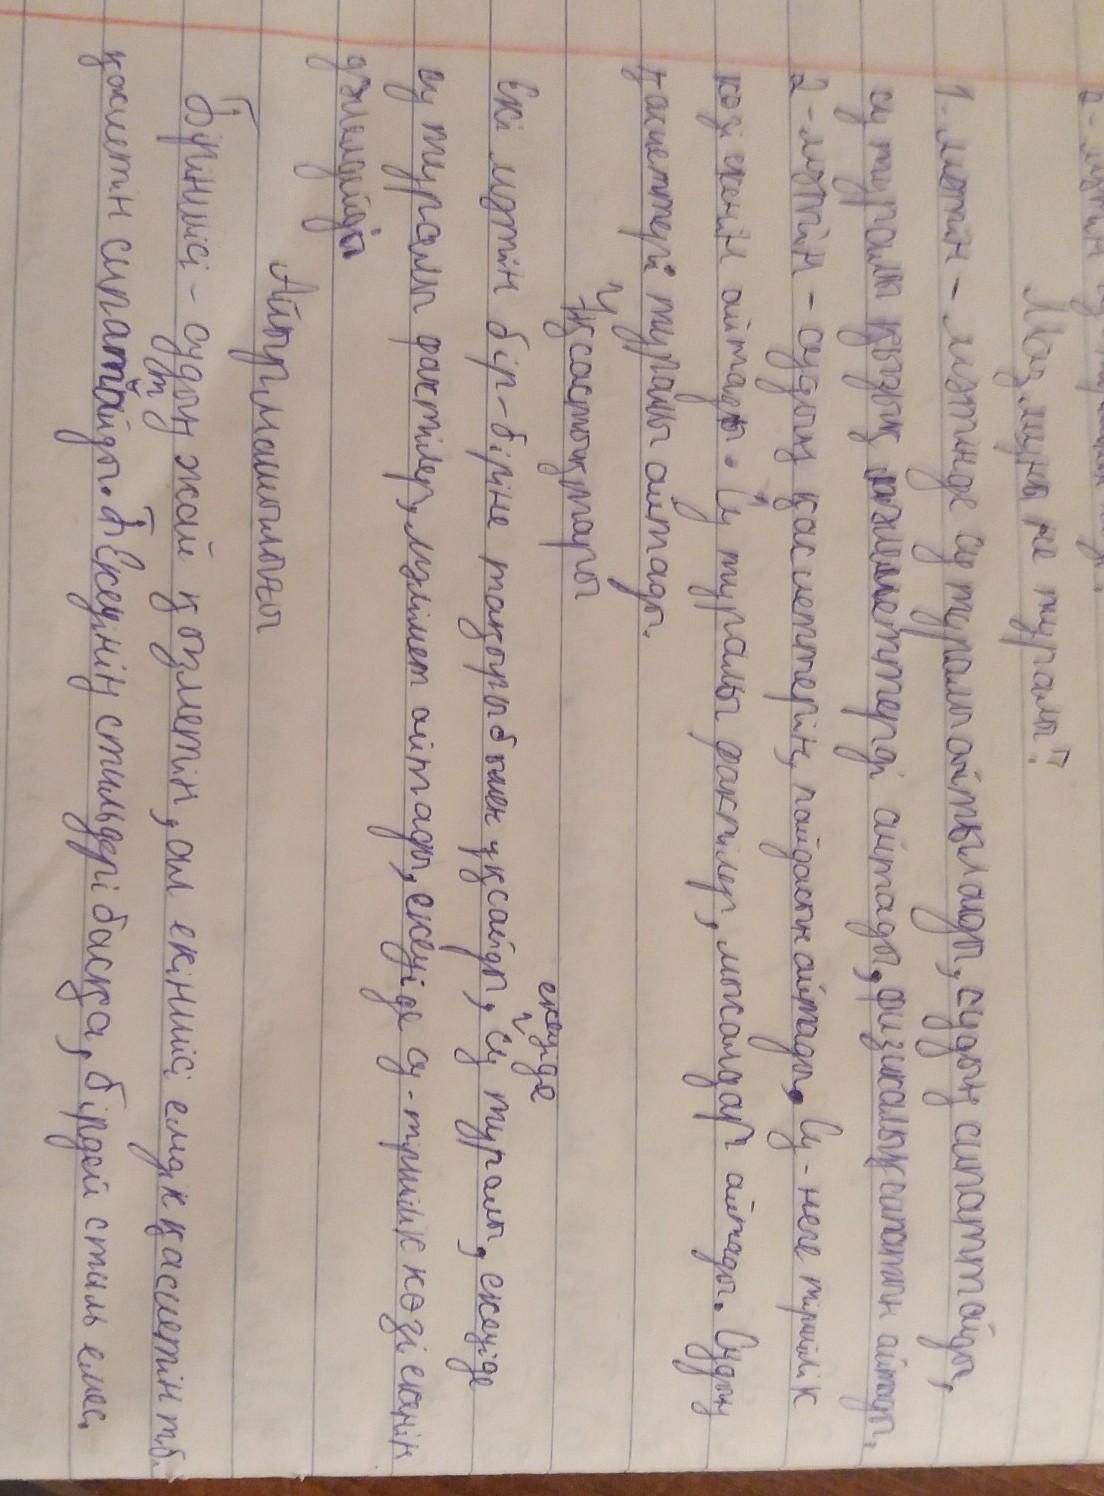 Мазмұны не туралы?
1-мәтін - мәтінде су туралы айтылады, судың сипаттайды,
су туралы қызық мәліметтерді айтады, физикалық сипатын айтады.
2-мәтін - судың қасиеттерін, пайдасын айтады. Су - неге тіршілік
көзі екенін айтады. Су туралы фактілер, мысалдар айтады. Судың
қасиеттері туралы айтады.
Ұқсастықтары
екеуіде
Екі мәтін бір-біріне тақырыбымен ұқсайды, су туралы, екеуіде
су туралы фактілер, мәлімет айтады, екеуіде су-тіршілік көзі екенін
дәлелдейді
Айырмашылығы
Біріншісі - судың жай қызметін, ал екіншісі емдік қасиетін тб.
қасиетін сипаттайды. Екеуінің стильдері басқа, бірдей стиль емес.